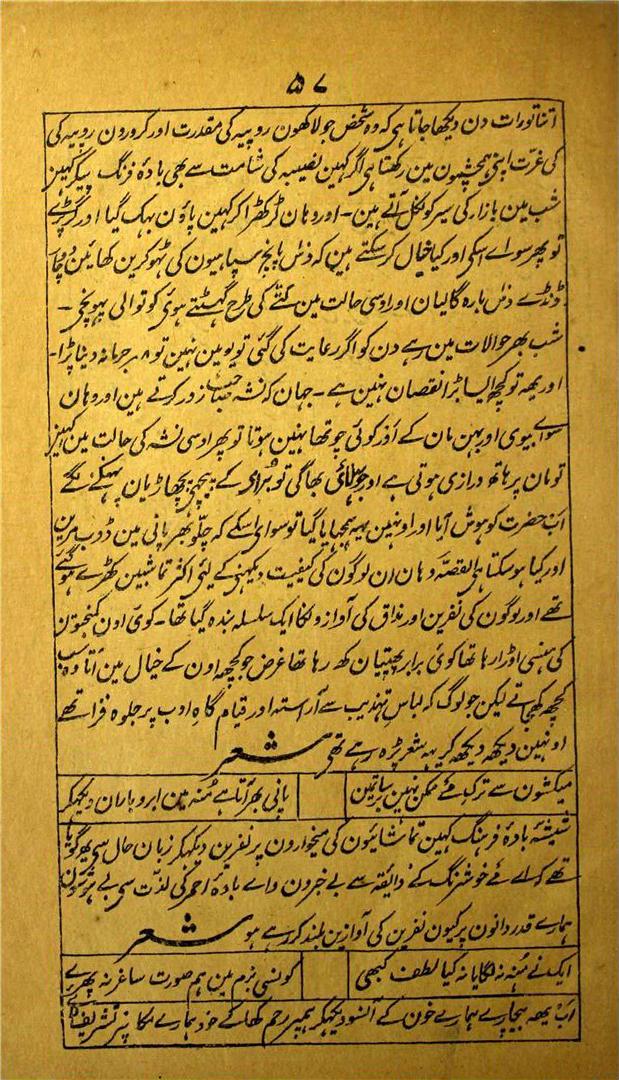 ۵۷
اتنا تو رات دن دیکھا جاتا ہی کہ وہ شخص جو لاکھون روپیہ کی مقدرت اور کرورون روپیہ کی
کی عزت اپنی ہمچشمون مین رکھتا ہی اگر کہین نصیبہ کی شامت سے بھی بادۂ فرنگ پیکر کہین
شب مین بازار کی سیر کو نکل آتے ہین۔ اور وہان لڑکھڑا کر کہین پاؤن بہک گیا اور گر پڑے
تو پھر سواے اسکی اور کیا خیال کر سکتے ہین کہ دس پانچ سپاہیون کی ٹھوکرین کھائین دو چار
ڈنڈے دس بارہ گالیان اور اوسی حالت مین کتے کی طرح گھسٹتے ہوئ کوتوالی پہونچی۔
شب بھر حوالات مین رہے دن کو اگر رعایت کی گئی تو یو مین نہین تو ۸ر جرمانہ دینا پڑا۔
اور یہہ تو کچھ ایسا بڑا نقصان نہین ہے۔ جہان کہ نشہ صاحب زور کرتے ہین اور وہان
سواے بیوی اور بہن مان کے اور کوئی چوتھا نہین ہوتا تو پھر اوسی نشہ کی حالت مین کہین
تو مان پر ہاتھ درازی ہوتی ہے اور بھاگی تو کے پیچھے پچھاڑیان پھکنے لگے
اب حضرت کو ہوش آیا اور اونہین یہہ سمجھایا گیا تو سواے اسکے کہ چلو بھر پانی مین ڈوب مرین
اور کیا ہو سکتا ہی القصہ وہان ان لوگون کی کیفیت دیکھنے کے لیئ اکثر تماشبین کھڑے ہو گئے
تھے اور لوگون کی نفرین اور مذاق کی آوازونکا ایک سلسلہ بندہ گیا تھا۔ کوئ اون کمبختون
کی ہنسی اوڑا رہا تھا کوئ برابر پھبتیان کھہ رہا تھا غرض جو کچھہ اون کے خیال مین آتا وہ سب
کچھہ کھجاتے لیکن جو لوگ کہ لباس تہذیب سے آراستہ اور قیام گاہ ادب پر جلوہ فرما تھے
اونہین دیکھہ دیکھہ کر یہہ شعر پڑہ رہے تھی شعر
میکشون سے ترک مے ممکن نہین برسات مین پانی بھر آتا ہے مُنہ مین ابر و باران دیکھکر
شیشۂ بادۂ فرہنگ کہین تماشائیون کی میخوارون پر نفرین دیکھکر زبان حال سی گویا
تھے کہ اے مے خوشرنگ کے ذایقہ سے بے خبرون واے بادۂ احمر کی لذت سی بے
ہمارے قدردانون پر کیون نفرین کی آوازین بلند کر رہے ہو شعر
ایک نے مُنہ نہ لگایا نہ کیا لطف کبھی کونسی بزم مین ہم صورت ساغر نہ پھرے
اب یہہ بیچارے ہمارے خون کے آنسو دیکھکر ہمپر رحم کھا کے خود ہمارے مکا نپر تشریف